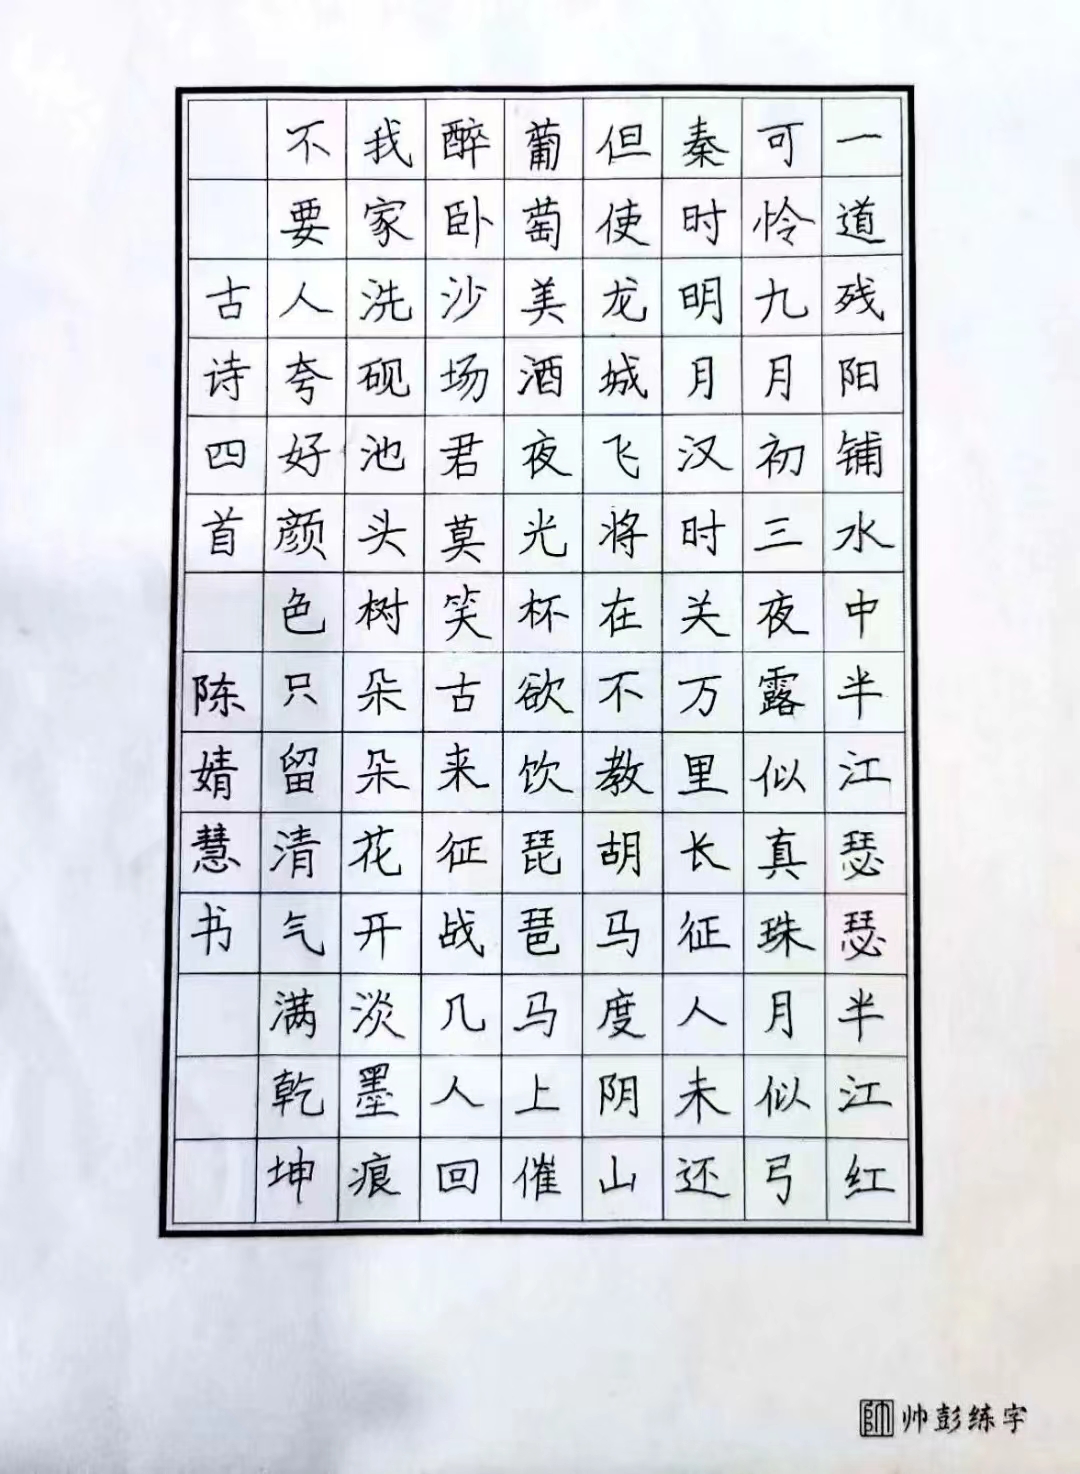 一道残阳铺水中半江瑟瑟半江红
可怜九月初三夜露似真珠月似弓
秦时明月汉时关万里长征人未还
但使龙城飞将在不教胡马度阴山
葡萄美酒夜光杯欲饮琵琶马上催
醉卧沙场君莫笑古来征战几人回
我家洗砚池头树朵朵花开淡墨痕
不要人夸好颜色只留清气满乾坤
古诗四首 陈婧慧书
帅 帅彭练字